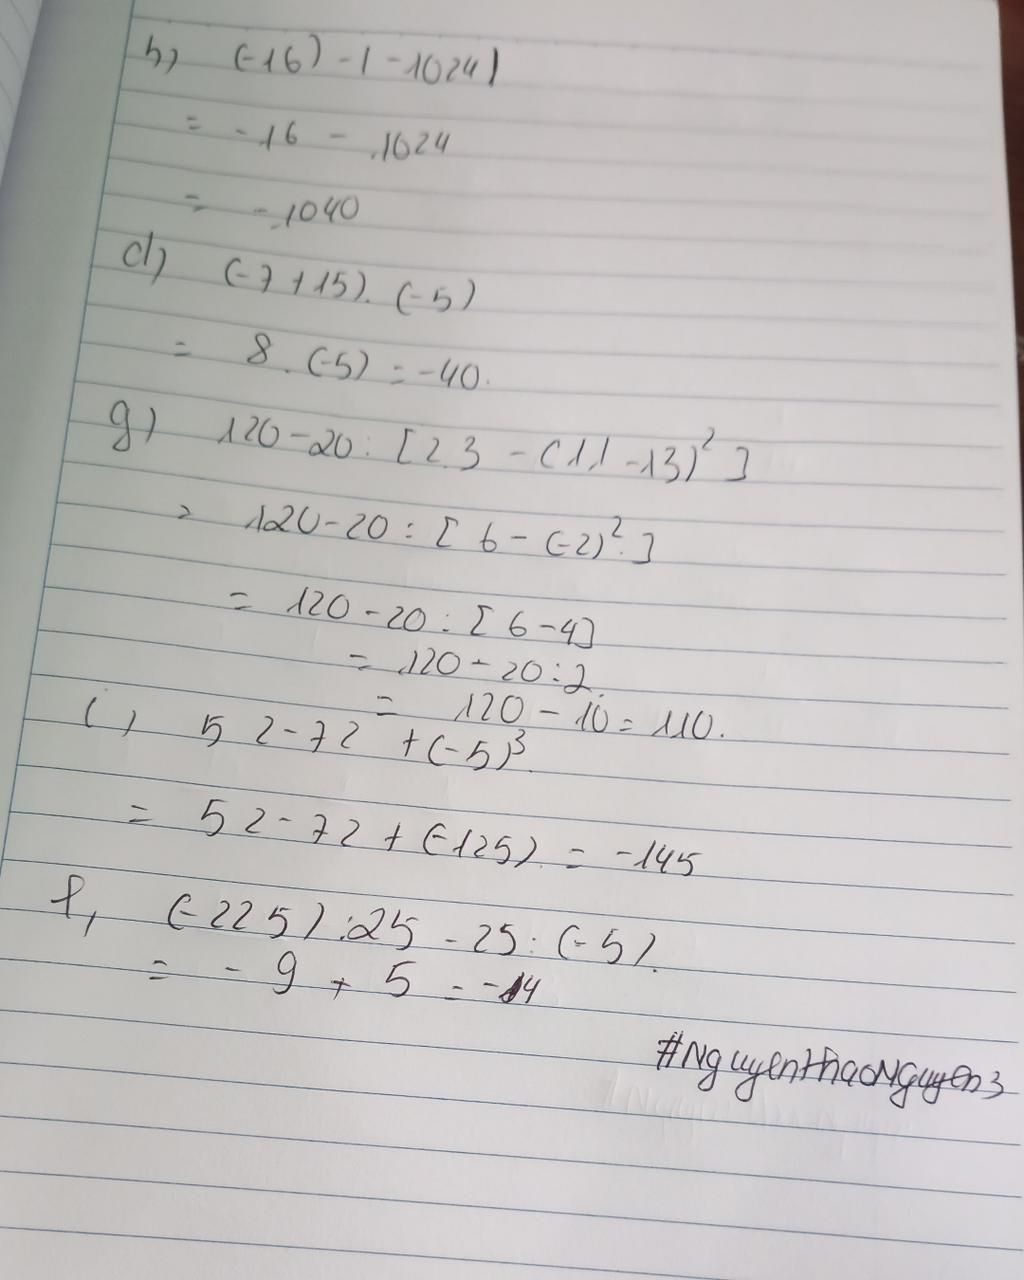 b, (-16) - | -1024 |
= -16 - 1024
= -1040
d) (-7 + 15). (-5)
= 8 . (-5) = -40.
g) 120 - 20 : [2.3 - (11 - 13)² ]
= 120 - 20 : [ 6 - (-2)². ]
= 120 - 20 : [ 6 - 4]
= 120 - 20 : 2.
= 120 - 10 = 110.
i, 52 - 72 + (-5)³.
= 52 - 72 + (-125) = -145
f, (-225) : 25 - 25 : (-5).
= -9 + 5 = -14
#NguyenthaoNguyen3